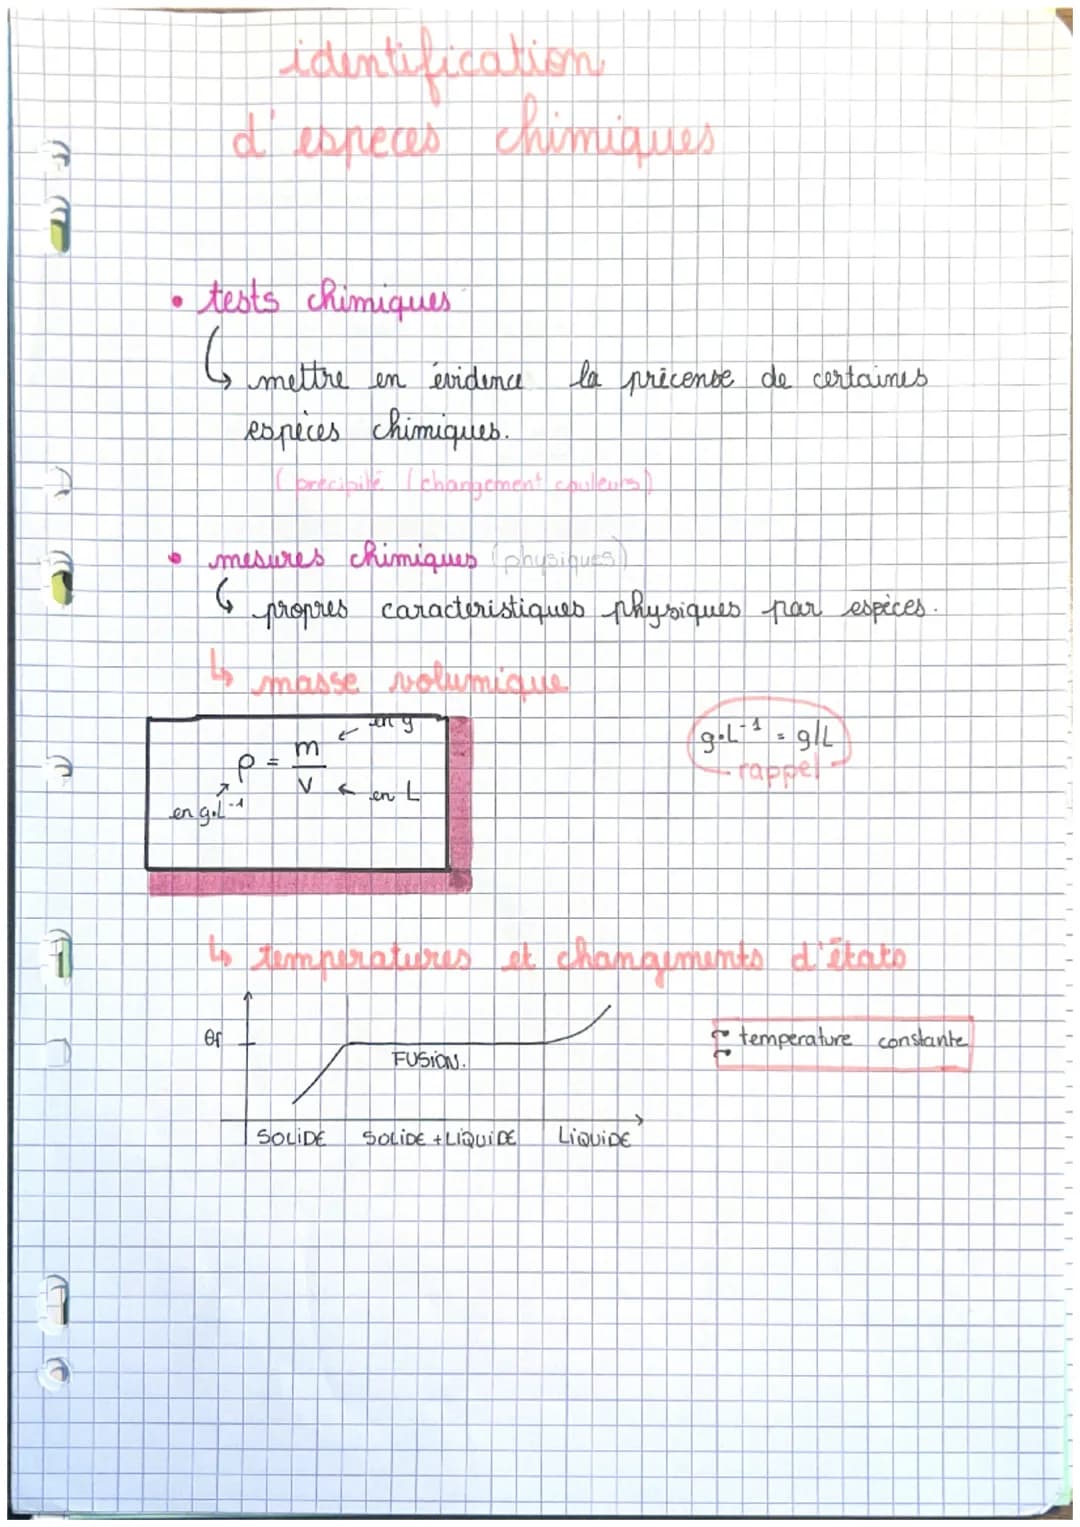 identification
d'especes chimiques
• tests chimiques
↳ mettre en évidence la précense de certaines
espèces chimiques.
(précipité (changement couleurs)
• mesures chimiques (physiques)
↳ propres caracteristiques physiques par espèces.
↳ masse volumique
ρ = m/V
← en g
← en L
en g•L⁻¹
g•L⁻¹ = g/L
rappel
↳ temperatures et changements d'états
θf
FUSION.
temperature constante
SOLIDE SOLIDE + LIQUIDE LIQUIDE